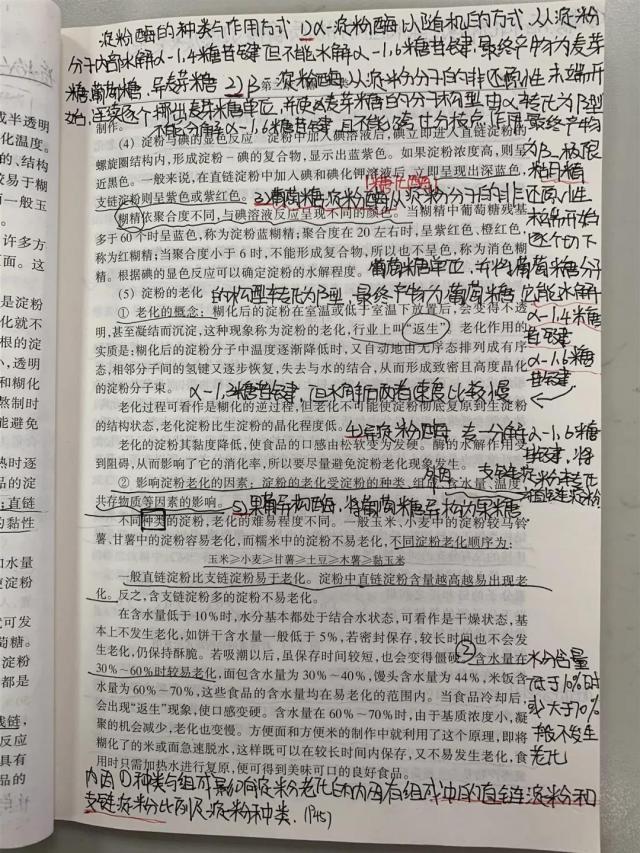 淀粉酶的种类与作用方式 1)α-淀粉酶以随机的方式,从淀粉
分子内部水解α-1.4糖苷键但不能水解α-1.6糖苷键.最终产物为麦芽
糖.葡萄糖、异麦芽糖 2)β-淀粉酶从淀粉分子的非还原性末端开
始,连续逐个
麦芽糖单位,并使
麦芽糖的分子构型由α转化为β型
不能分解α-1.6糖苷键 且不能
分枝点.
最终产物
为β-极限
糊精
制作。
(4) 淀粉与碘的显色反应 淀粉中加入碘溶液后,碘立即进入直链淀粉的
螺旋圈结构内,形成淀粉-碘的复合物,显示出蓝紫色。如果淀粉浓度高,则呈
近黑色。一般来说,在直链淀粉中加入碘和碘化钾溶液后,立即呈现出深蓝色,
支链淀粉则呈紫色或紫红色。
[糖化酶]
3.葡萄糖淀粉酶从淀粉分子的非还原性
末端开始
逐个切下
糊精依聚合度不同,与碘溶液反应呈现不同的颜色。当糊精中葡萄糖残基
多于60个时呈蓝色,称为淀粉蓝糊精;聚合度在20左右时,呈紫红色、橙红色,
称为红糊精;当聚合度小于6时,不能形成复合物,所以也不呈色,称为消色糊
精。根据碘的显色反应可以确定淀粉的水解程度。
葡萄糖单位,并将葡萄糖分子
的构型转化为β型,最终产物为葡萄糖,还能水解
α-1.4糖
苷键
α-1.6糖
苷键
α-1.3糖苷键,但水解后两者速度比较慢
(5) 淀粉的老化
① 老化的概念:糊化后的淀粉在室温或低于室温下放置后,会变得不透
明,甚至凝结而沉淀,这种现象称为淀粉的老化,行业上叫“返生”。老化作用的
实质是:糊化后的淀粉分子中温度逐渐降低时,又自动地由无序态排列成有序
态,相邻分子间的氢键又逐步恢复,失去与水的结合,从而形成致密且高度晶化
的淀粉分子束。
老化过程可看作是糊化的逆过程,但老化不可能使淀粉彻底复原到生淀粉
的结构状态,老化淀粉比生淀粉的晶化程度低。
4)异淀粉酶 专一分解α-1.6糖
苷键,将
支链淀粉转化
直链淀粉
老化的淀粉其黏度降低,使食品的口感由松软变为发硬。酶的水解作用受
到阻碍,从而影响了它的消化率,所以要尽量避免淀粉老化现象发生。
外因
② 影响淀粉老化的因素:淀粉的老化受淀粉的种类、组成、含水量、温度、
共存物质等因素的影响。
5)果葡异构酶,将葡萄糖异构为果糖
不同种类的淀粉,老化的难易程度不同。一般玉米、小麦中的淀粉较马铃
薯、甘薯中的淀粉容易老化,而糯米中的淀粉不易老化,不同淀粉老化顺序为:
玉米≥小麦≥甘薯≥土豆≥木薯≥黏玉米
一般直链淀粉比支链淀粉易于老化。淀粉中直链淀粉含量越高越易出现老
化。反之,含支链淀粉多的淀粉不易老化。
在含水量低于10%时,水分基本都处于结合水状态,可看作是干燥状态,基
本上不发生老化,如饼干含水量一般低于5%,若密封保存,较长时间也不会发
生老化,仍保持酥脆。若吸潮以后,虽保存时间较短,也会变得僵硬。②含水量在
30%~60%时较易老化,面包含水量为30%~40%,馒头含水量为44%,米饭含
水量为60%~70%,这些食品的含水量均在易老化的范围内。当食品冷却后,
会出现“返生”现象,使口感变硬。含水量在60%~70%时,由于基质浓度小,凝
聚的机会减少,老化也变慢。方便面和方便米的制作中就利用了这个原理,即将
糊化了的米或面急速脱水,这样既可以在较长时间内保存,又不易发生老化,食
用时只需加热水进行复原,便可得到美味可口的良好食品。
水份含量
低于10%时
或大于70%
一般不发生
老化
内因①种类与组成 影响淀粉老化的内因有组成中的直链淀粉和
支链淀粉比例及淀粉种类.(P45)
或半透明
化温度。
的、结构
较易于糊
一般玉
许多方
面。这
是淀粉
化就不
根的淀
小,透明
和糊化
熬制时
能避免
热时逐
;直链
的黏性
加水量
使淀粉
就可发
萄糖。
淀粉
都是
浅链,
反应
具有
品的